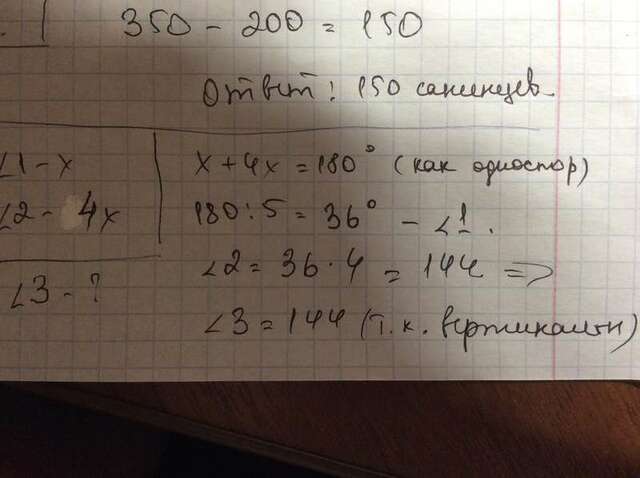 350 - 200 = 150
Ответ: 150 саженцев.
∠1 - x
∠2 - 4x
∠3 - ?
x + 4x = 180° (как одностор)
180 : 5 = 36° - ∠1.
∠2 = 36 · 4 = 144 =>
∠3 = 144 (т.к. вертикальн)